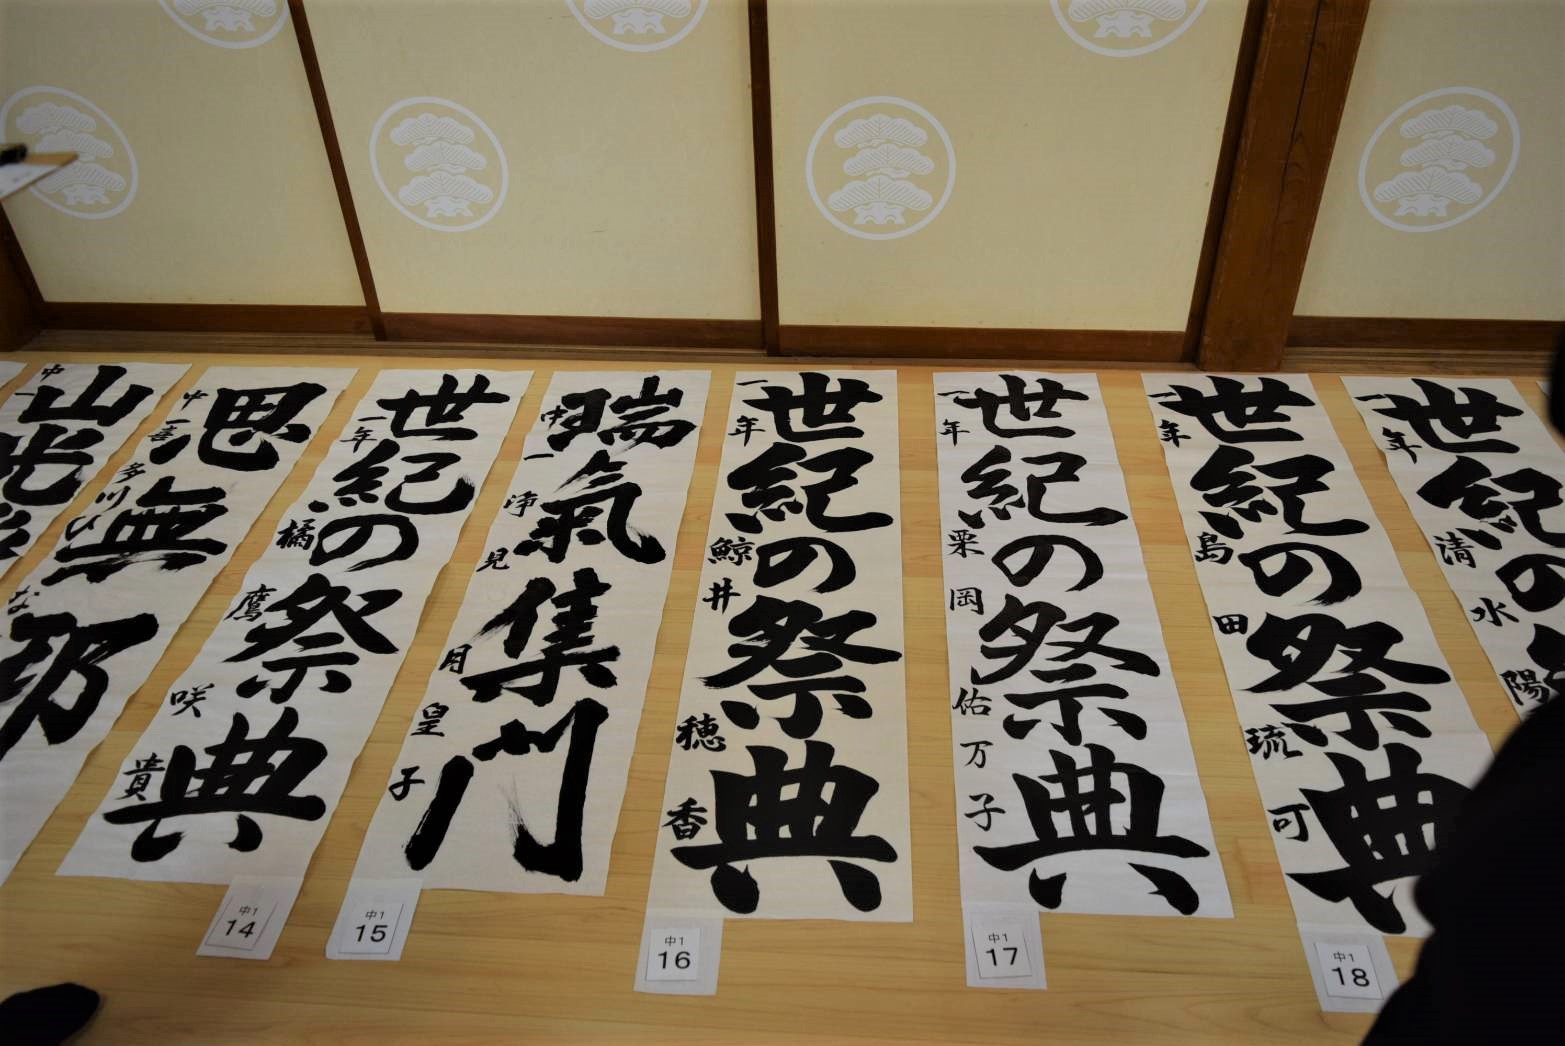 中一
山光
中一
喜多川
な
思無邪
一年
橘鷹咲貴
世紀の祭典
中1
14
中一
浄見月皇子
瑞氣集門
中1
15
一年
鯨井穂香
世紀の祭典
中1
16
一年
栗岡佑万子
世紀の祭典
中1
17
一年
島田琉可
世紀の祭典
中1
18
一年
清水陽
世紀の